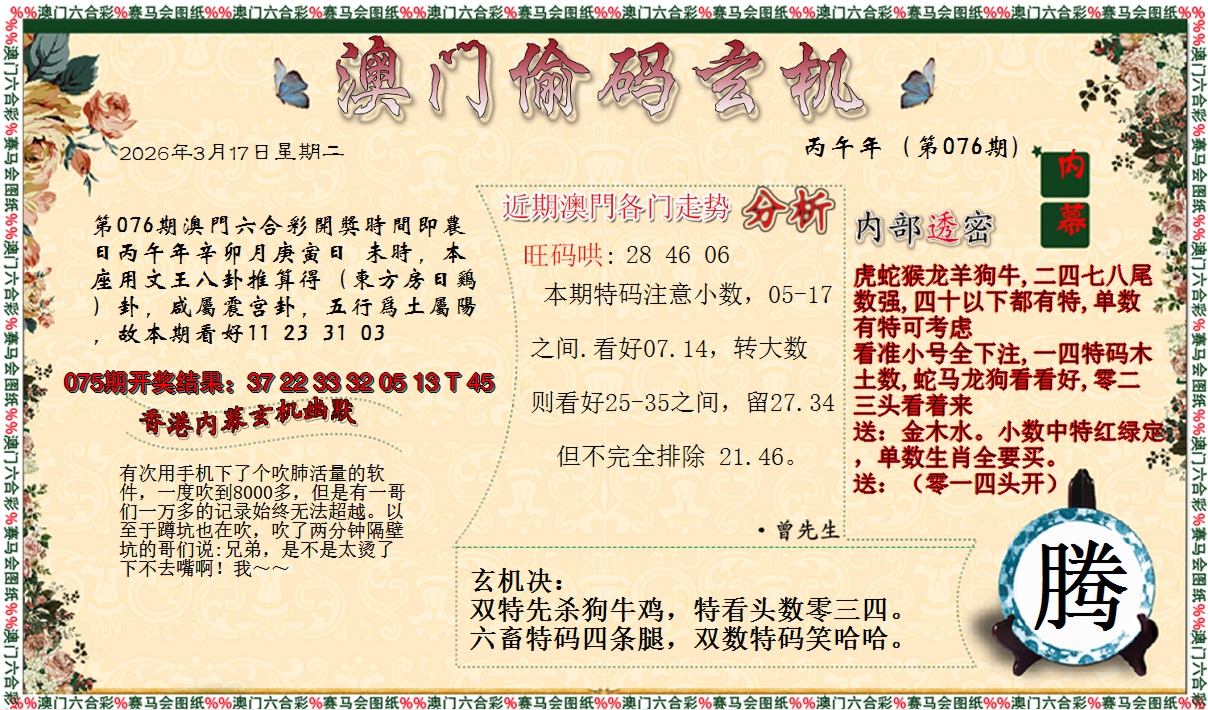 %%澳门六合彩%赛马会图纸%%澳门六合彩%赛马会图纸%%澳门六合彩%赛马会图纸%%澳门六合彩%赛马会图纸%%澳门六合彩%赛马会图纸%%澳门六合彩%赛马会图纸%%
澳门偷码玄机
2026年3月17日星期二
丙午年（第076期）
第076期澳門六合彩開獎時間即農
日丙午年辛卯月庚寅日 未時，本
座用文王八卦推算得（東方房日鷄
）卦，咸屬震宫卦，五行爲土屬陽
，故本期看好11 23 31 03
075期开奖结果：37 22 33 32 05 13 T 45
香港内幕玄机幽默
有次用手机下了个吹肺活量的软
件，一度吹到8000多，但是有一哥
们一万多的记录始终无法超越。以
至于蹲坑也在吹，吹了两分钟隔壁
坑的哥们说:兄弟，是不是太烫了
下不去嘴啊！我～～
近期澳門各门走势 分析
旺码哄: 28 46 06
本期特码注意小数，05-17
之间.看好07.14，转大数
则看好25-35之间，留27.34
但不完全排除 21.46。
·曾先生
内幕
内部透密
虎蛇猴龙羊狗牛,二四七八尾
数强,四十以下都有特,单数
有特可考虑
看准小号全下注,一四特码木
土数,蛇马龙狗看看好,零二
三头看着来
送：金木水。小数中特红绿定
，单数生肖全要买。
送：（零一四头开）
玄机决：
双特先杀狗牛鸡，特看头数零三四。
六畜特码四条腿，双数特码笑哈哈。
腾
%%澳门六合彩%赛马会图纸%%澳门六合彩%赛马会图纸%%澳门六合彩%赛马会图纸%%澳门六合彩%赛马会图纸%%澳门六合彩%赛马会图纸%%澳门六合彩%赛马会图纸%%